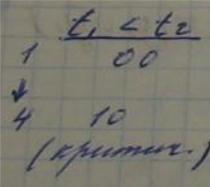 t₁ < t₂
1 00
↓
4 10
(критич.)